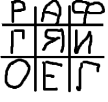 РАФ
ГЯИ
ОЕЛ